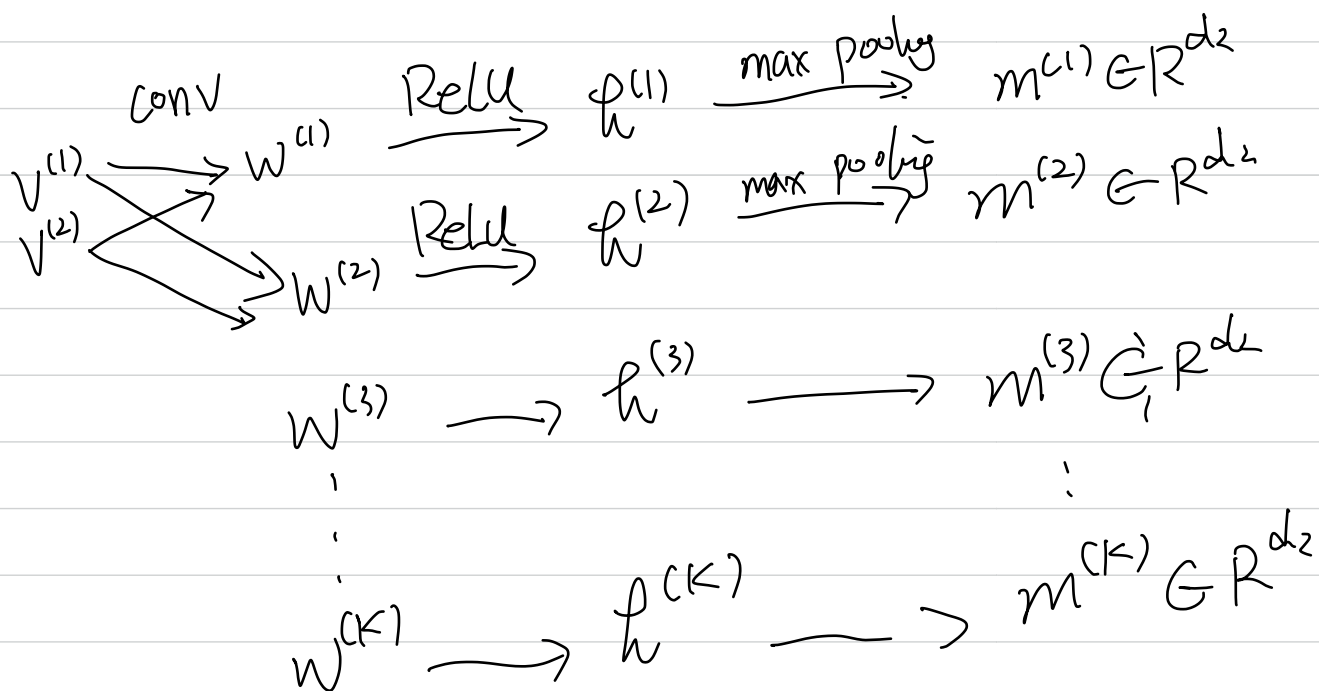 conv ReLU h^(1) max pooling m^(1) ∈ R^d2
V^(1) W^(1)
V^(2) W^(2) ReLU h^(2) max pooling m^(2) ∈ R^d2
W^(3) h^(3) m^(3) ∈ R^d2
⋮ ⋮
W^(K) h^(K) m^(K) ∈ R^d2